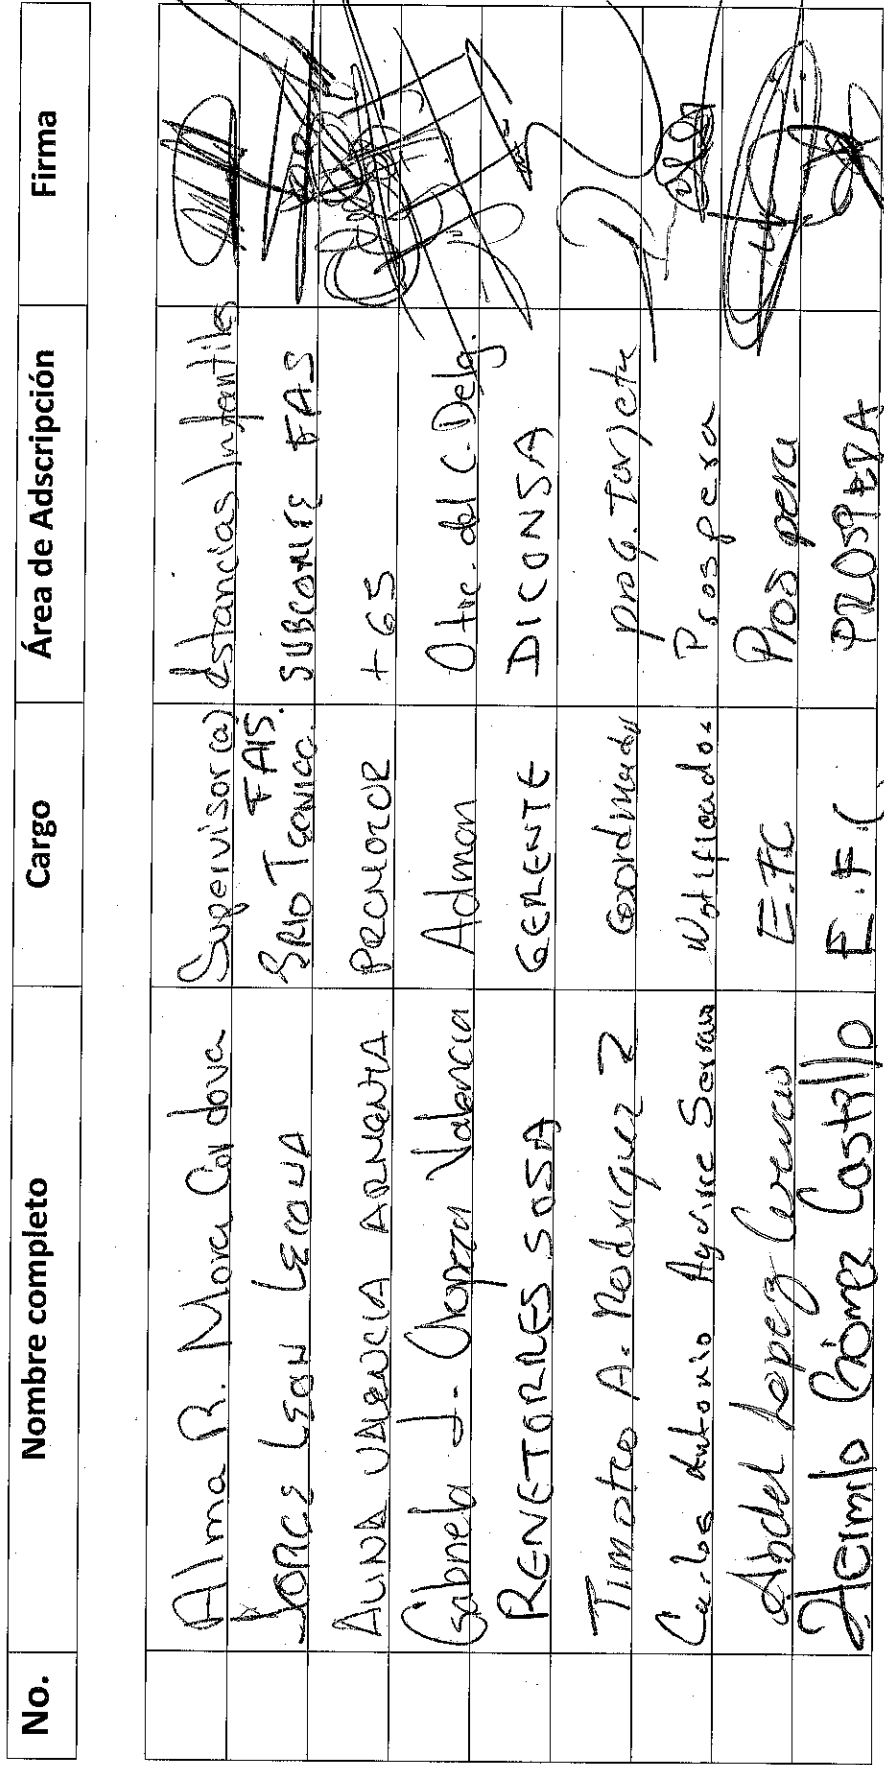 No. Nombre completo Cargo Área de Adscripción Firma
Alma R. Mora Cordova Supervisor(a) Estancias Infantiles
JORGE LEON LECONA SRIO TECNICO FAIS. SUBCOMITE FAS
ALINA VALENCIA ARMENTA PROMOTOR +65
Gabriela J. Oropeza Valencia Admon Ofic. del C. Delg.
RENE TORRES SOSA GERENTE DICONSA
Timoteo A. Rodriguez Z Coordinador prog. Tarjeta
Carlos Antonio Aguirre Serrano Notificador Prospera
Abdel Lopez E.F.C Prospera
Hermilo Gómez Castillo E.F.C PROSPERA